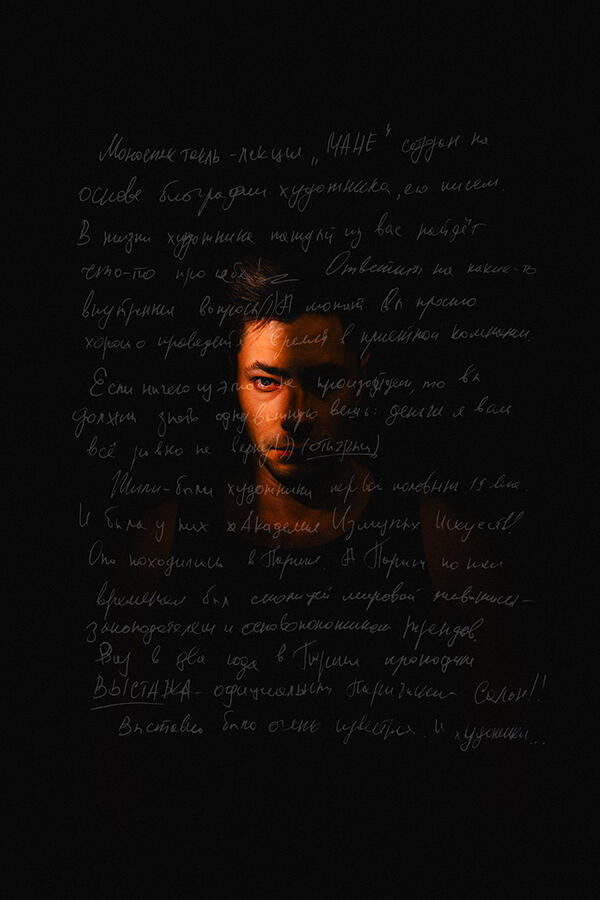 Моноспектакль-лекция „МАНЕ" создан на
основе биографии художника, его писем.
В жизни художника каждый из вас найдёт
что-то про себя Ответит на какие-то
внутренние вопросы)) А может вы просто
хорошо проведёте время в приятной компании.
Если ничего из этого не произойдёт, то вы
должны знать одну важную вещь: деньги я вам
всё равно не верну)))
Жили-были художники первой половины 19 века.
И была у них Академия Изящных Искусств!
Она находилась в Париже. А Париж по тем
временам был столицей мировой живописи-
законодателем и основоположником трендов.
Раз в два года в Париже проходила
ВЫСТАВКА- официальный Парижский Салон!!
Выставка была очень известна. И художники...